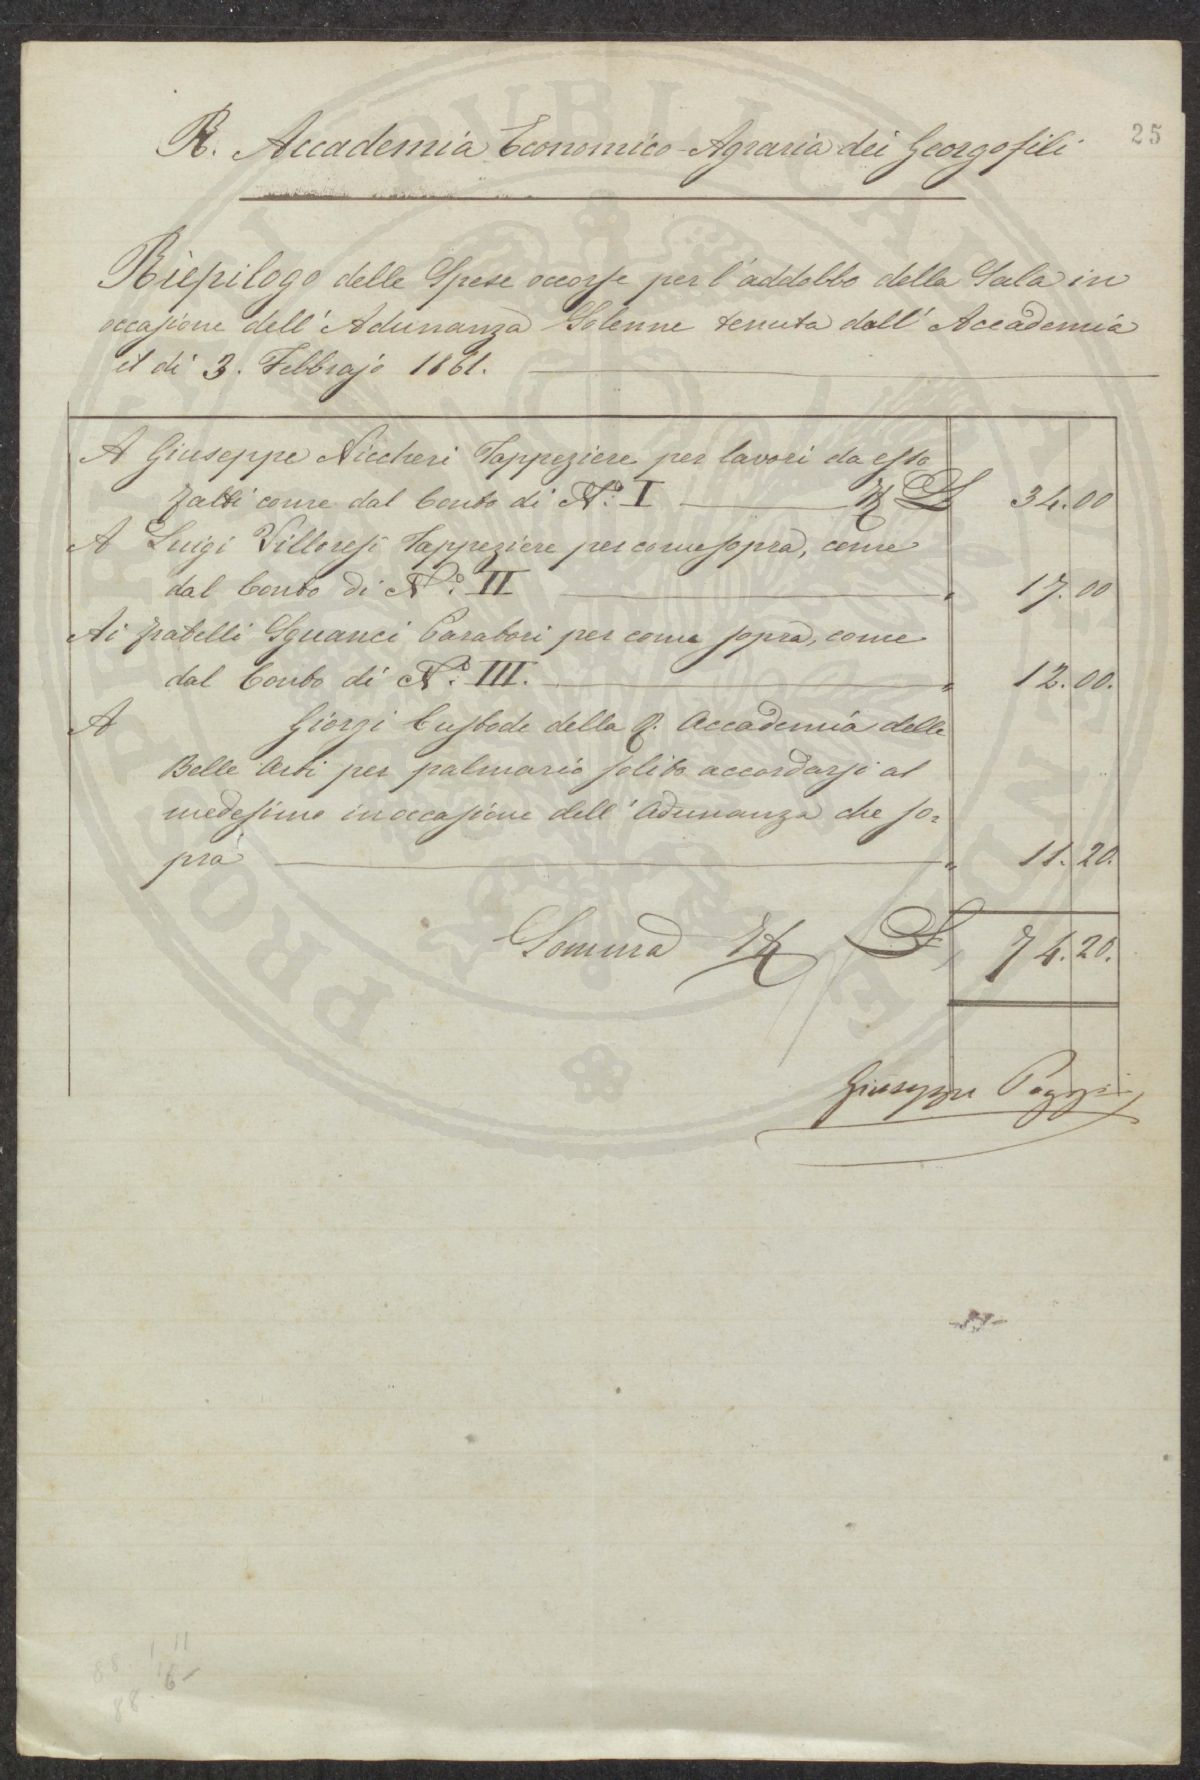 25
R. Accademia Economico-Agraria dei Georgofili
Riepilogo delle Spese occorse per l'addobbo della Sala in
occasione dell'Adunanza Solenne tenuta dall'Accademia
il dì 3. Febbrajo 1861.
A Giuseppe Niccheri Tappeziere per lavori da esso
fatti come dal Conto di N.º I £ 34.00
A Luigi Villoresi Tappeziere per come sopra, come
dal Conto di N.º II " 17.00
Ai fratelli Sguanci Paratori per come sopra, come
dal Conto di N.º III. " 12.00.
A Giorgi Custode della R. Accademia delle
Belle Arti per palmario solito accordarsi al
medesimo in occasione dell'Adunanza che so=
pra " 11.20.
Somma £ 74.20.
Giuseppe Poggi